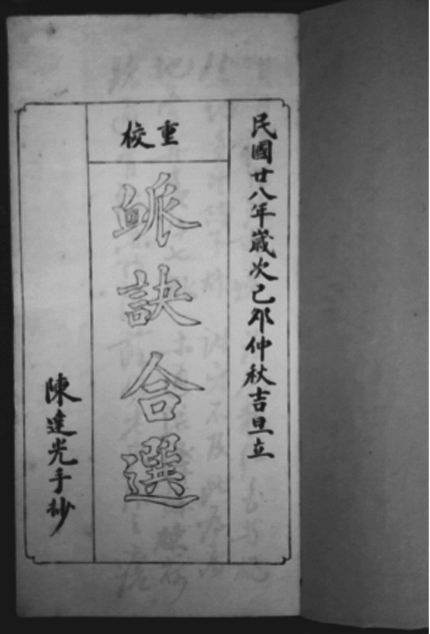 民國廿八年歲次己卯仲秋吉旦立
重校
衇訣合選
陳達光手抄